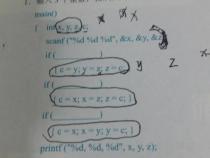 main()
{ int x, y, z, c;
scanf ("%d %d %d", &x, &y, &z
if ( )
{ c = y; y = z; z = c; }
if ( )
{ c = x; x = z; z = c; }
if ( )
{ c = x; x = y; y = c; }
printf ("%d, %d, %d", x, y, z);